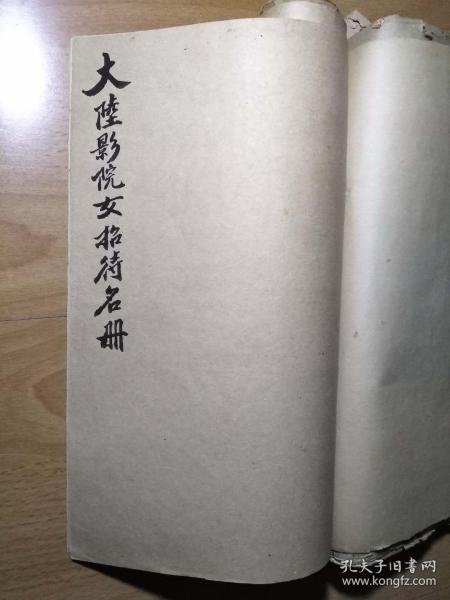 大陸影院女招待名册
孔夫子旧书网
www.kongfz.com